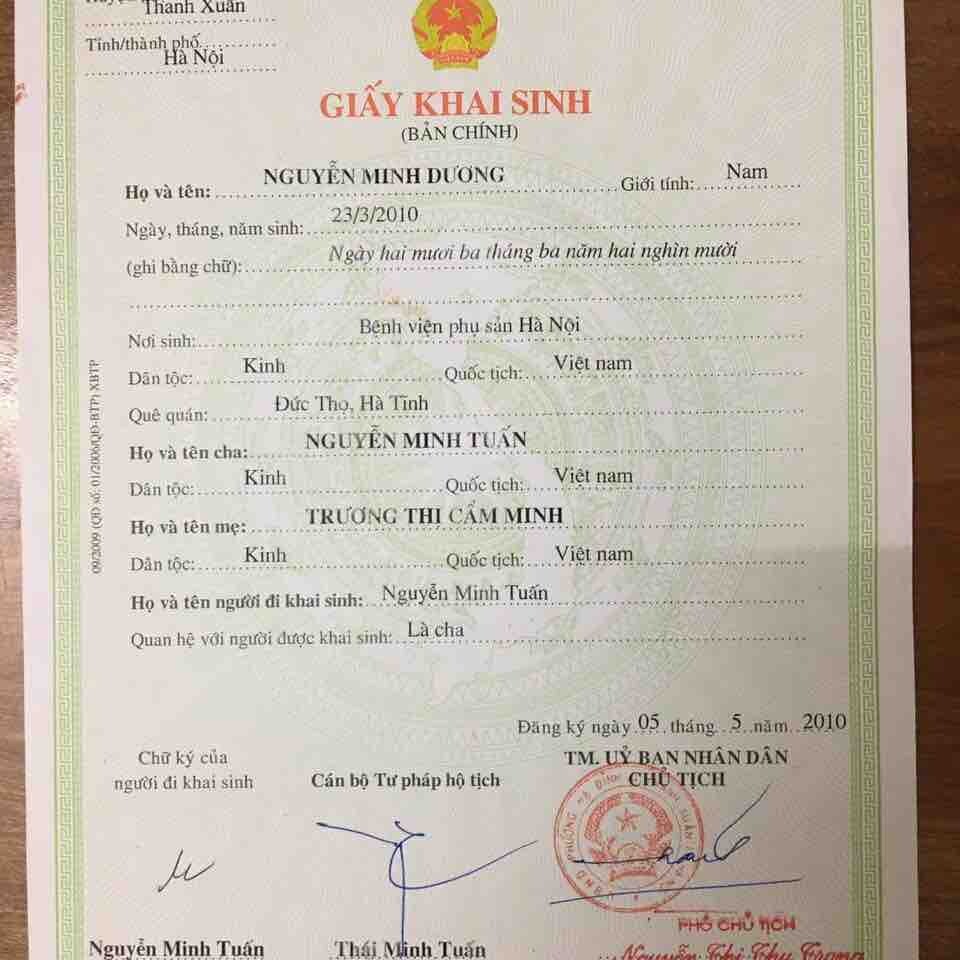 Thanh Xuân
Tỉnh/thành phố
Hà Nội
GIẤY KHAI SINH
(BẢN CHÍNH)
Họ và tên: NGUYỄN MINH DƯƠNG Giới tính: Nam
Ngày, tháng, năm sinh: 23/3/2010
(ghi bằng chữ): Ngày hai mươi ba tháng ba năm hai nghìn mười
Nơi sinh: Bệnh viện phụ sản Hà Nội
Dân tộc: Kinh Quốc tịch: Việt nam
Quê quán: Đức Thọ, Hà Tĩnh
Họ và tên cha: NGUYỄN MINH TUẤN
Dân tộc: Kinh Quốc tịch: Việt nam
Họ và tên mẹ: TRƯƠNG THI CẨM MINH
Dân tộc: Kinh Quốc tịch: Việt nam
Họ và tên người đi khai sinh: Nguyễn Minh Tuấn
Quan hệ với người được khai sinh: Là cha
09/2009 (QĐ số: 01/2006/QĐ-BTP) XBTP
Đăng ký ngày 05 tháng 5 năm 2010
Chữ ký của
người đi khai sinh
Cán bộ Tư pháp hộ tịch
TM. UỶ BAN NHÂN DÂN
CHỦ TỊCH
PHÓ CHỦ TỊCH
Nguyễn Minh Tuấn
Thái Minh Tuấn
Nguyễn Thị Thu Trang